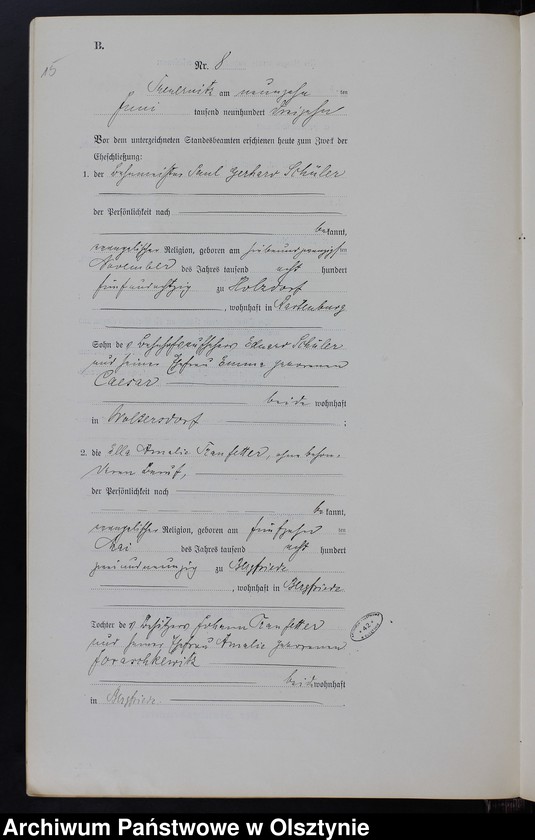 B.
15
Nr. 8
am neunzehn ten
Juni tausend neunhundert dreizehn
Vor dem unterzeichneten Standesbeamten erschienen heute zum Zweck der
Eheschließung:
1. der Paul Gerhard Schüler
der Persönlichkeit nach
bekannt,
evangelischer Religion, geboren am siebenundzwanzigsten
November des Jahres tausend acht hundert
fünfundachtzig zu
, wohnhaft in Rastenburg
Sohn des Eduard Schüler
und seiner Ehefrau Emma geborenen
Caesar
beide wohnhaft
in Woltersdorf ;
2. die Ella Amalie ohne beson-
deren Beruf,
der Persönlichkeit nach
bekannt,
evangelischer Religion, geboren am fünfzehn ten
des Jahres tausend acht hundert
zweiundneunzig zu Bergfriede
, wohnhaft in Bergfriede
Tochter des Besitzers Johann
und seiner Ehefrau Amalie geborenen
beide wohnhaft
in Bergfriede
42
Archiwum Państwowe w Olsztynie